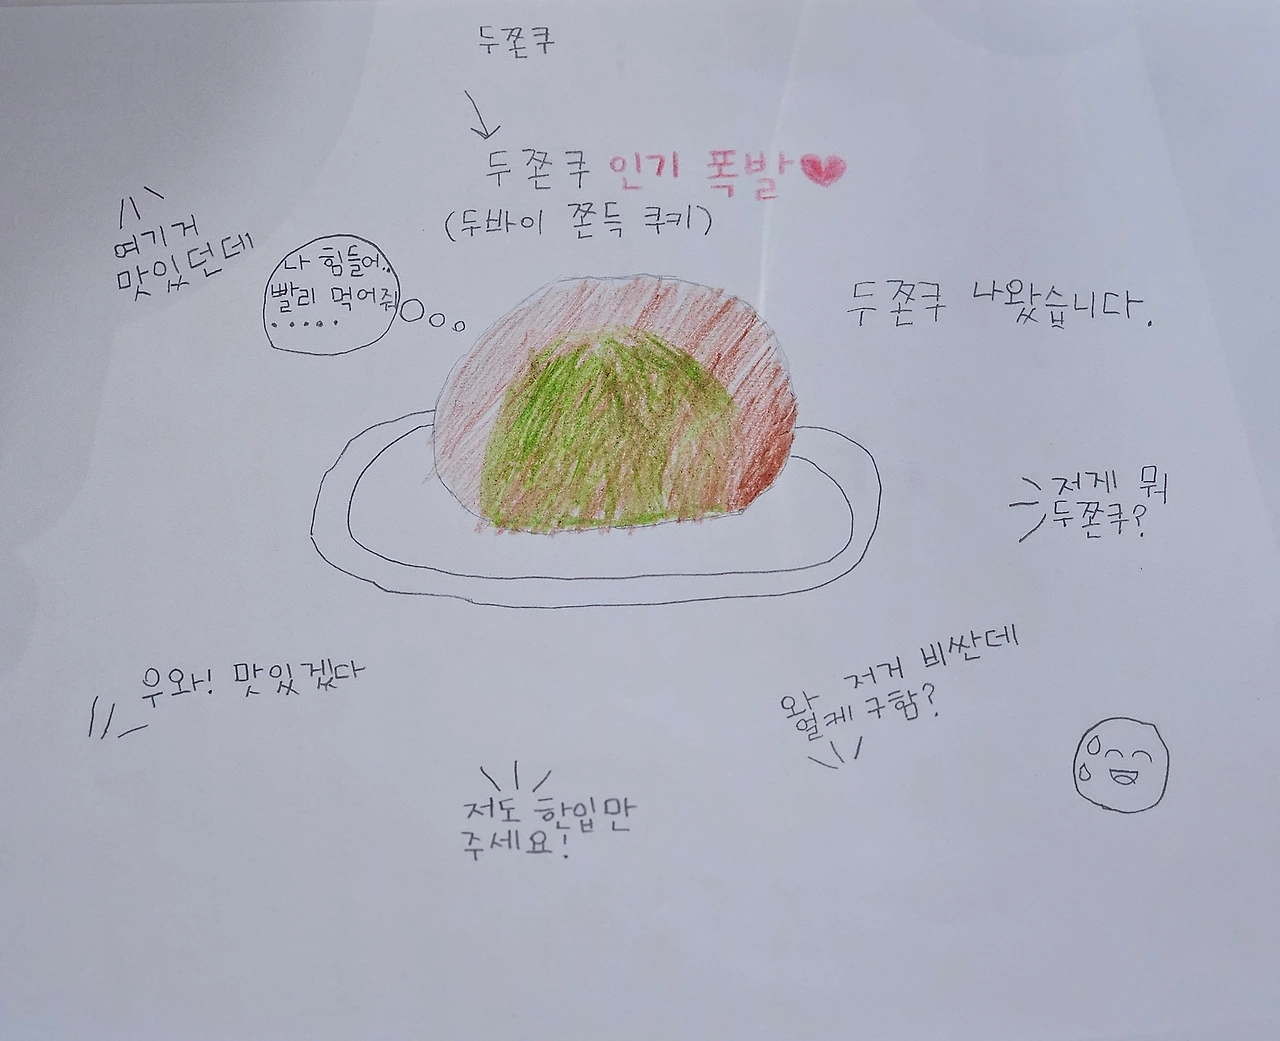 두쫀쿠
두쫀쿠 인기 폭발
(두바이 쫀득 쿠키)
여기거
맛있던데
나 힘들어..
빨리 먹어줘
.....
두쫀쿠 나왔습니다.
저게 뭐
두쫀쿠?
우와! 맛있겠다
와 저거 비싼데
얼케 구함?
저도 한입만
주세요!